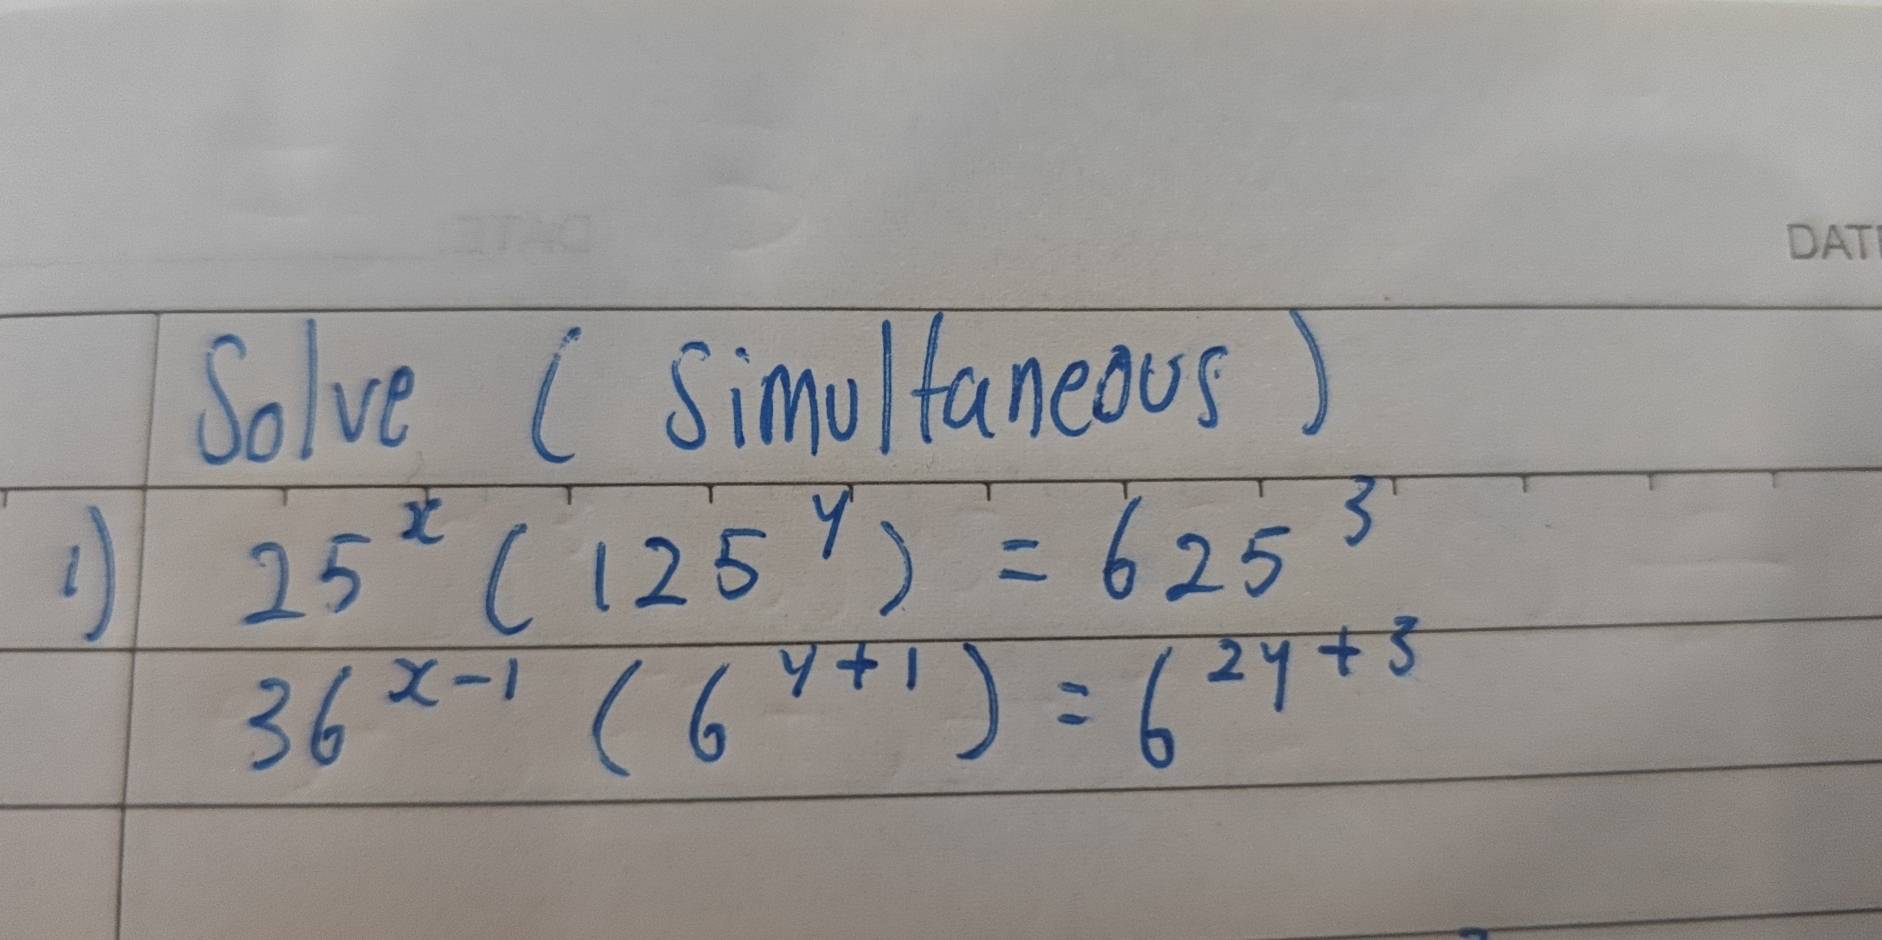 DATE
Solve ( Simultaneous )
1) 25^x ( 125^y ) = 625^3
36^{x-1} ( 6^{y+1} ) = 6^{2y+3}